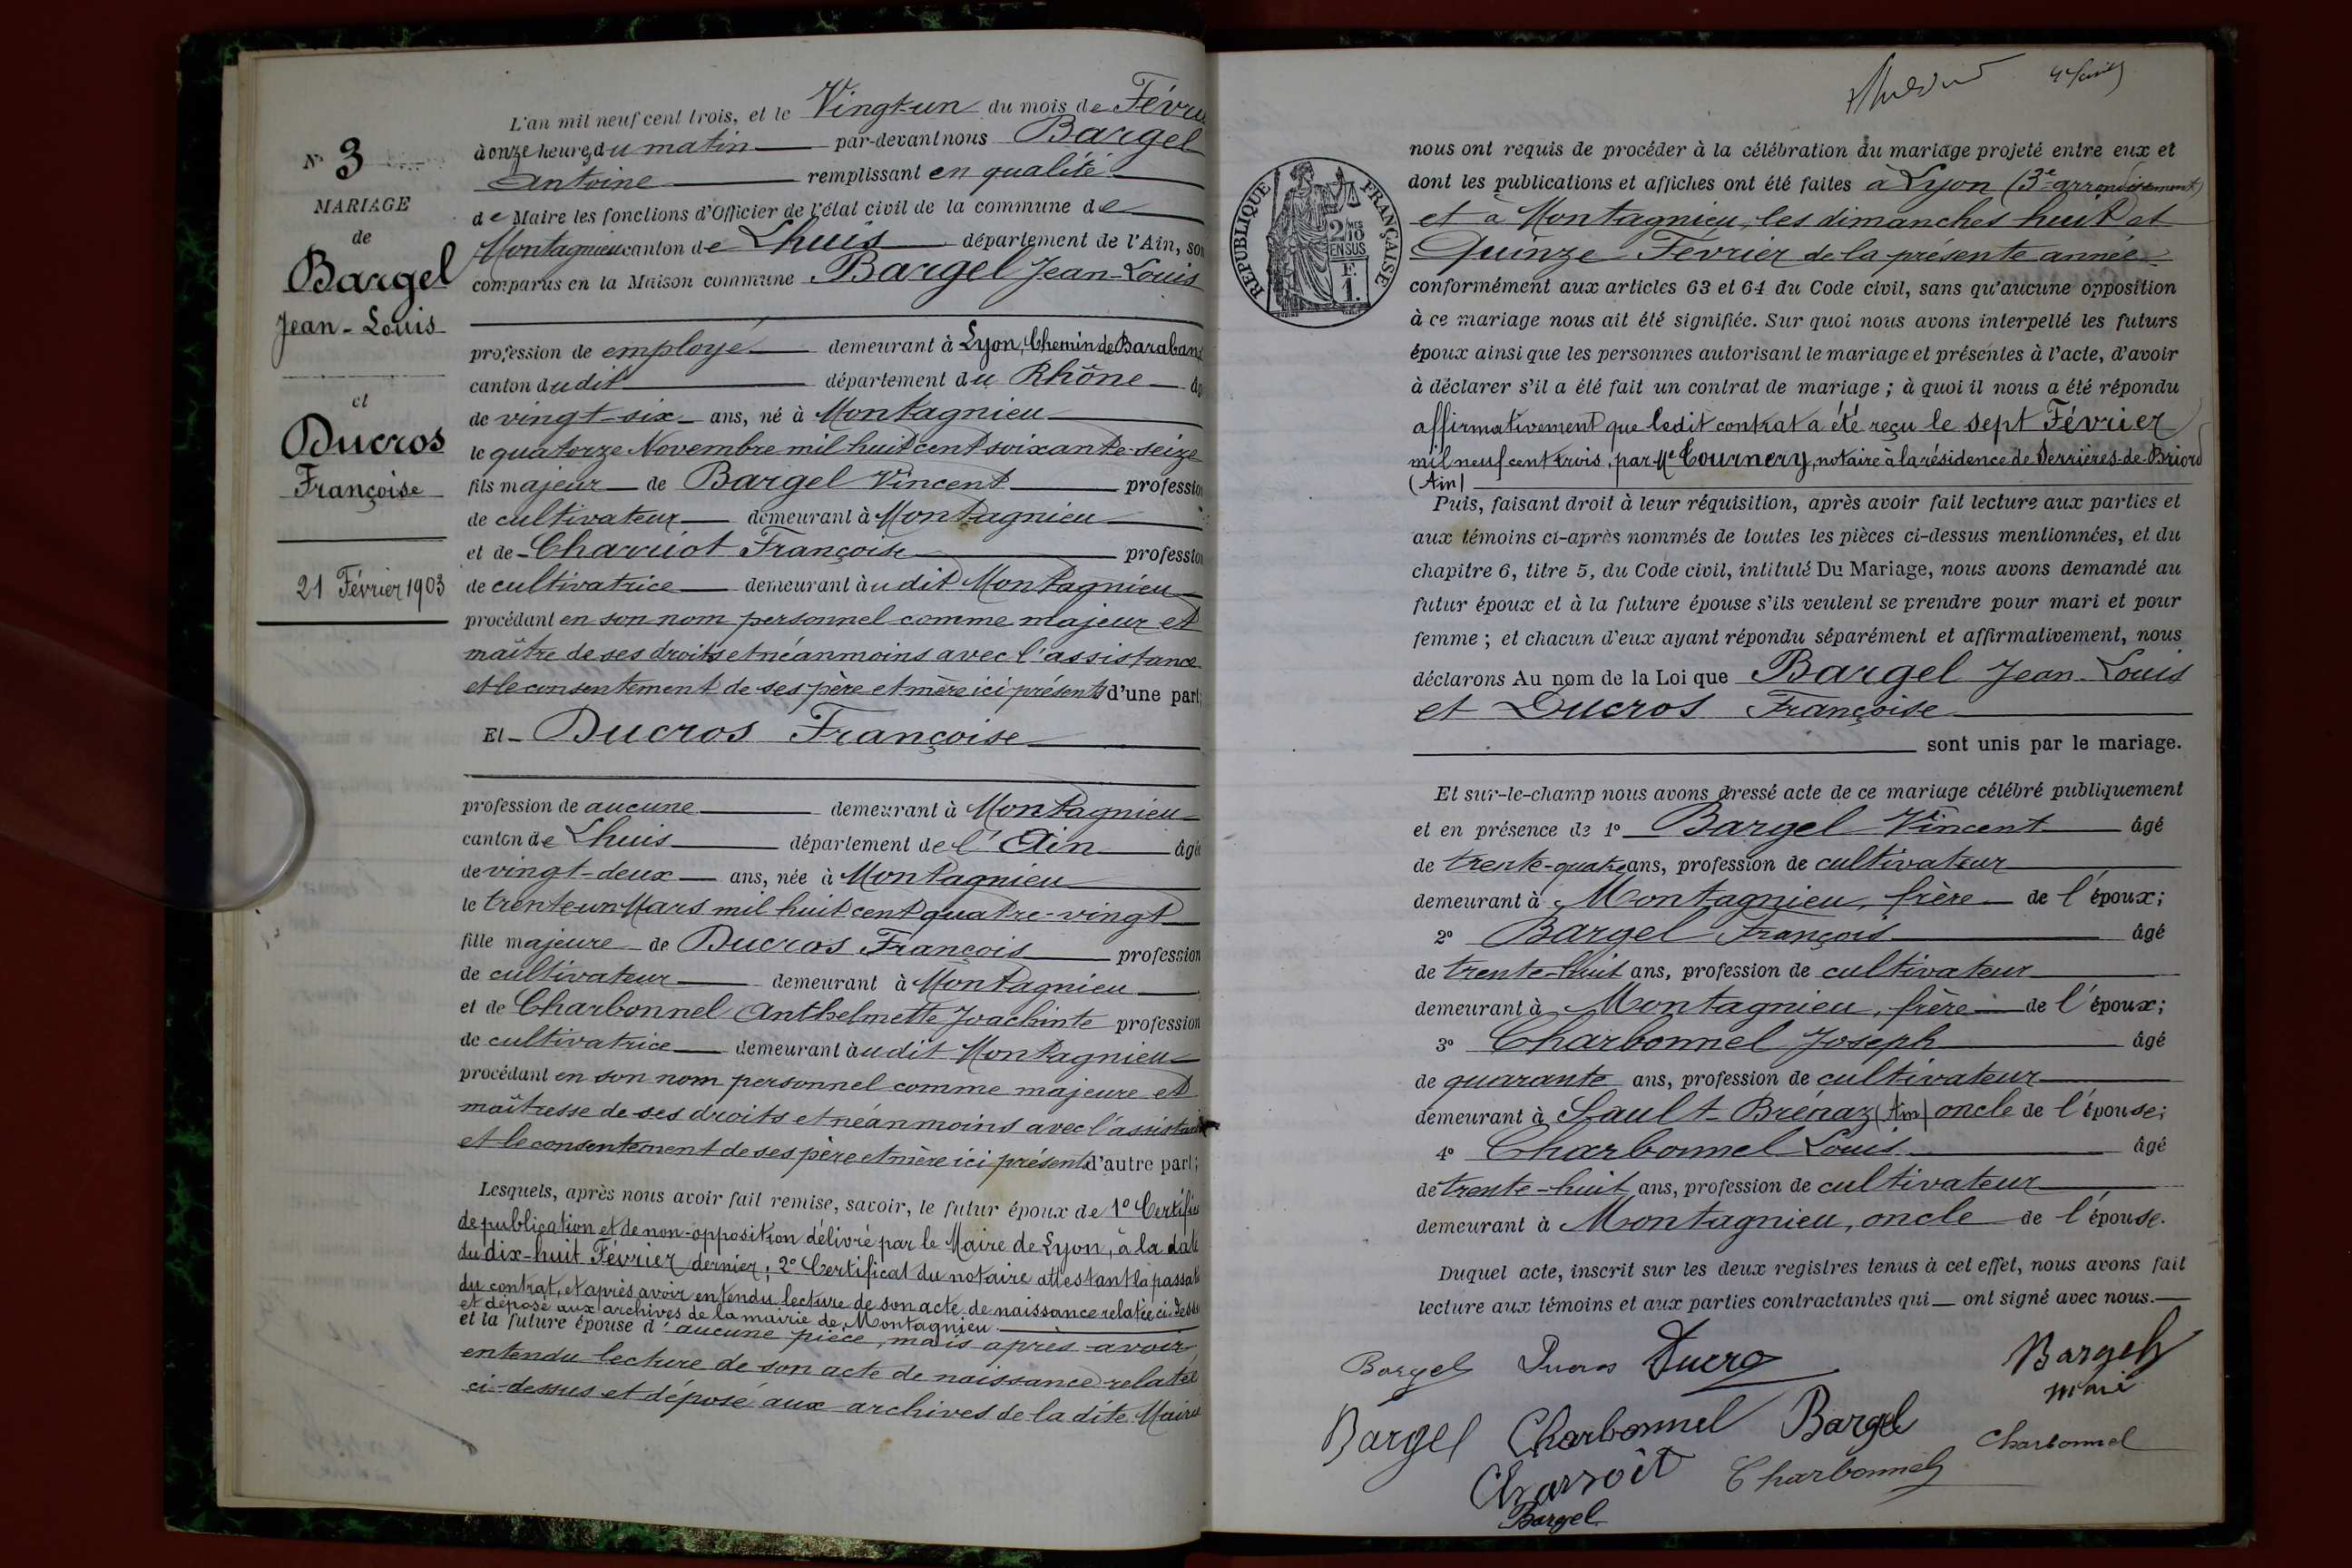 N° 3
MARIAGE
de
Bargel
Jean-Louis
et
Ducros
Françoise
21 Février 1903
L'an mil neuf cent trois, et le Vingt-un du mois de Févri
à onze heures du matin par-devant nous Bargel
Antoine remplissant en qualité
de Maire les fonctions d'Officier de l'état civil de la commune de
Montagnieu canton de Lhuis département de l'Ain, son
comparus en la Maison commune Bargel Jean-Louis
profession de employé demeurant à Lyon, Chemin de Baraban
canton dudit département du Rhône âg
de vingt-six ans, né à Montagnieu
le quatorze Novembre mil huit cent soixante-seize
fils majeur de Bargel Vincent profession
de cultivateur demeurant à Montagnieu
et de Charriot Françoise profession
de cultivatrice demeurant audit Montagnieu
procédant en son nom personnel comme majeur et
maître de ses droits et néanmoins avec l'assistance
et le consentement de ses père et mère ici présents d'une part;
Et Ducros Françoise
profession de aucune demeurant à Montagnieu
canton de Lhuis département de l'Ain âgée
de vingt-deux ans, née à Montagnieu
le trente-un Mars mil huit cent quatre-vingt
fille majeure de Ducros François profession
de cultivateur demeurant à Montagnieu
et de Charbonnel Anthelmette Joachinte profession
de cultivatrice demeurant audit Montagnieu
procédant en son nom personnel comme majeure et
maîtresse de ses droits et néanmoins avec l'assistan
et le consentement de ses père et mère ici présents d'autre part;
Lesquels, après nous avoir fait remise, savoir, le futur époux de 1° Certific
de publication et de non-opposition délivré par le Maire de Lyon, à la date
du dix-huit Février dernier; 2° Certificat du notaire attestant la passat
du contrat, et après avoir entendu lecture de son acte de naissance relatée ci-dess
et déposé aux archives de la mairie de Montagnieu
et la future épouse d'aucune pièce, mais après avoir
entendu lecture de son acte de naissance relaté
ci-dessus et déposé aux archives de la dite Mairie
RÉPUBLIQUE FRANÇAISE
2/10
MES
EN SUS
F.
1.
nous ont requis de procéder à la célébration du mariage projeté entre eux et
dont les publications et affiches ont été faites à Lyon (3e arrondissement)
et à Montagnieu, les dimanches huit et
Quinze Février de la présente année
conformément aux articles 63 et 64 du Code civil, sans qu'aucune opposition
à ce mariage nous ait été signifiée. Sur quoi nous avons interpellé les futurs
époux ainsi que les personnes autorisant le mariage et présentes à l'acte, d'avoir
à déclarer s'il a été fait un contrat de mariage ; à quoi il nous a été répondu
affirmativement que ledit contrat a été reçu le sept Février
mil neuf cent trois, par Me Cournery, notaire à la résidence de Serrières-de-Briord
(Ain)
Puis, faisant droit à leur réquisition, après avoir fait lecture aux parties et
aux témoins ci-après nommés de toutes les pièces ci-dessus mentionnées, et du
chapitre 6, titre 5, du Code civil, intitulé Du Mariage, nous avons demandé au
futur époux et à la future épouse s'ils veulent se prendre pour mari et pour
femme ; et chacun d'eux ayant répondu séparément et affirmativement, nous
déclarons Au nom de la Loi que Bargel Jean-Louis
et Ducros Françoise
sont unis par le mariage.
Et sur-le-champ nous avons dressé acte de ce mariage célébré publiquement
et en présence de 1° Bargel Vincent âgé
de trente-quatre ans, profession de cultivateur
demeurant à Montagnieu, frère de l'époux;
2° Bargel François âgé
de trente-huit ans, profession de cultivateur
demeurant à Montagnieu, frère de l'époux;
3° Charbonnel Joseph âgé
de quarante ans, profession de cultivateur
demeurant à Sault-Brénaz (Ain) oncle de l'épouse;
4° Charbonnel Louis âgé
de trente-huit ans, profession de cultivateur
demeurant à Montagnieu, oncle de l'épouse.
Duquel acte, inscrit sur les deux registres tenus à cet effet, nous avons fait
lecture aux témoins et aux parties contractantes qui ont signé avec nous.
Bargel Ducros Ducro Bargel
Bargel Charbonnel Bargel Charbonnel
Charroit Charbonnel
Bargel